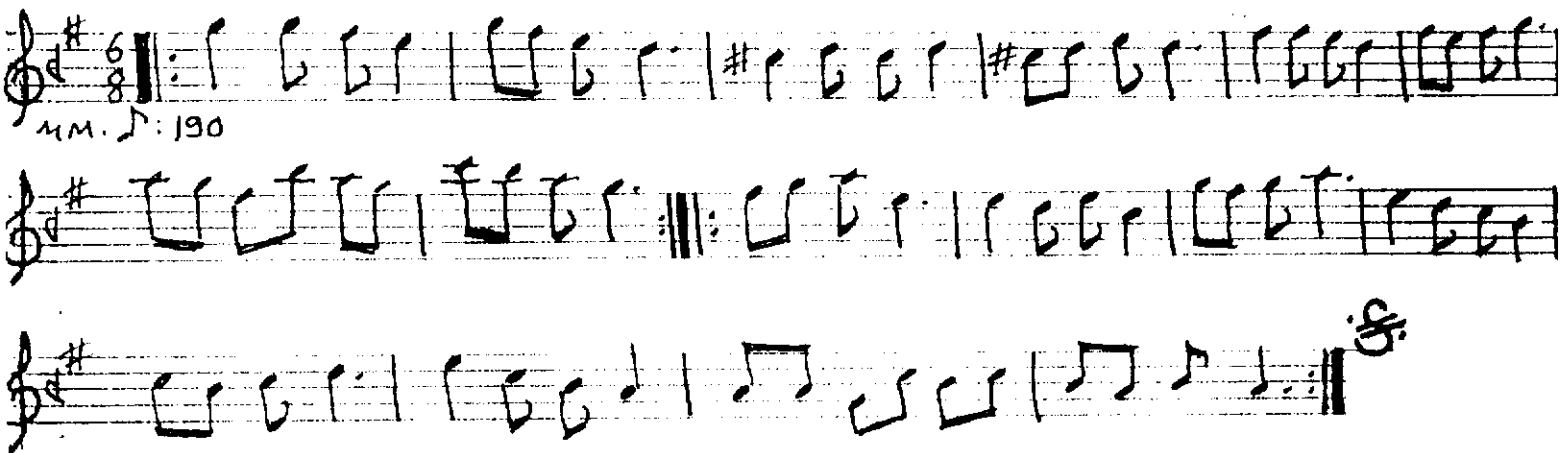 6
8
MM. ♪: 190